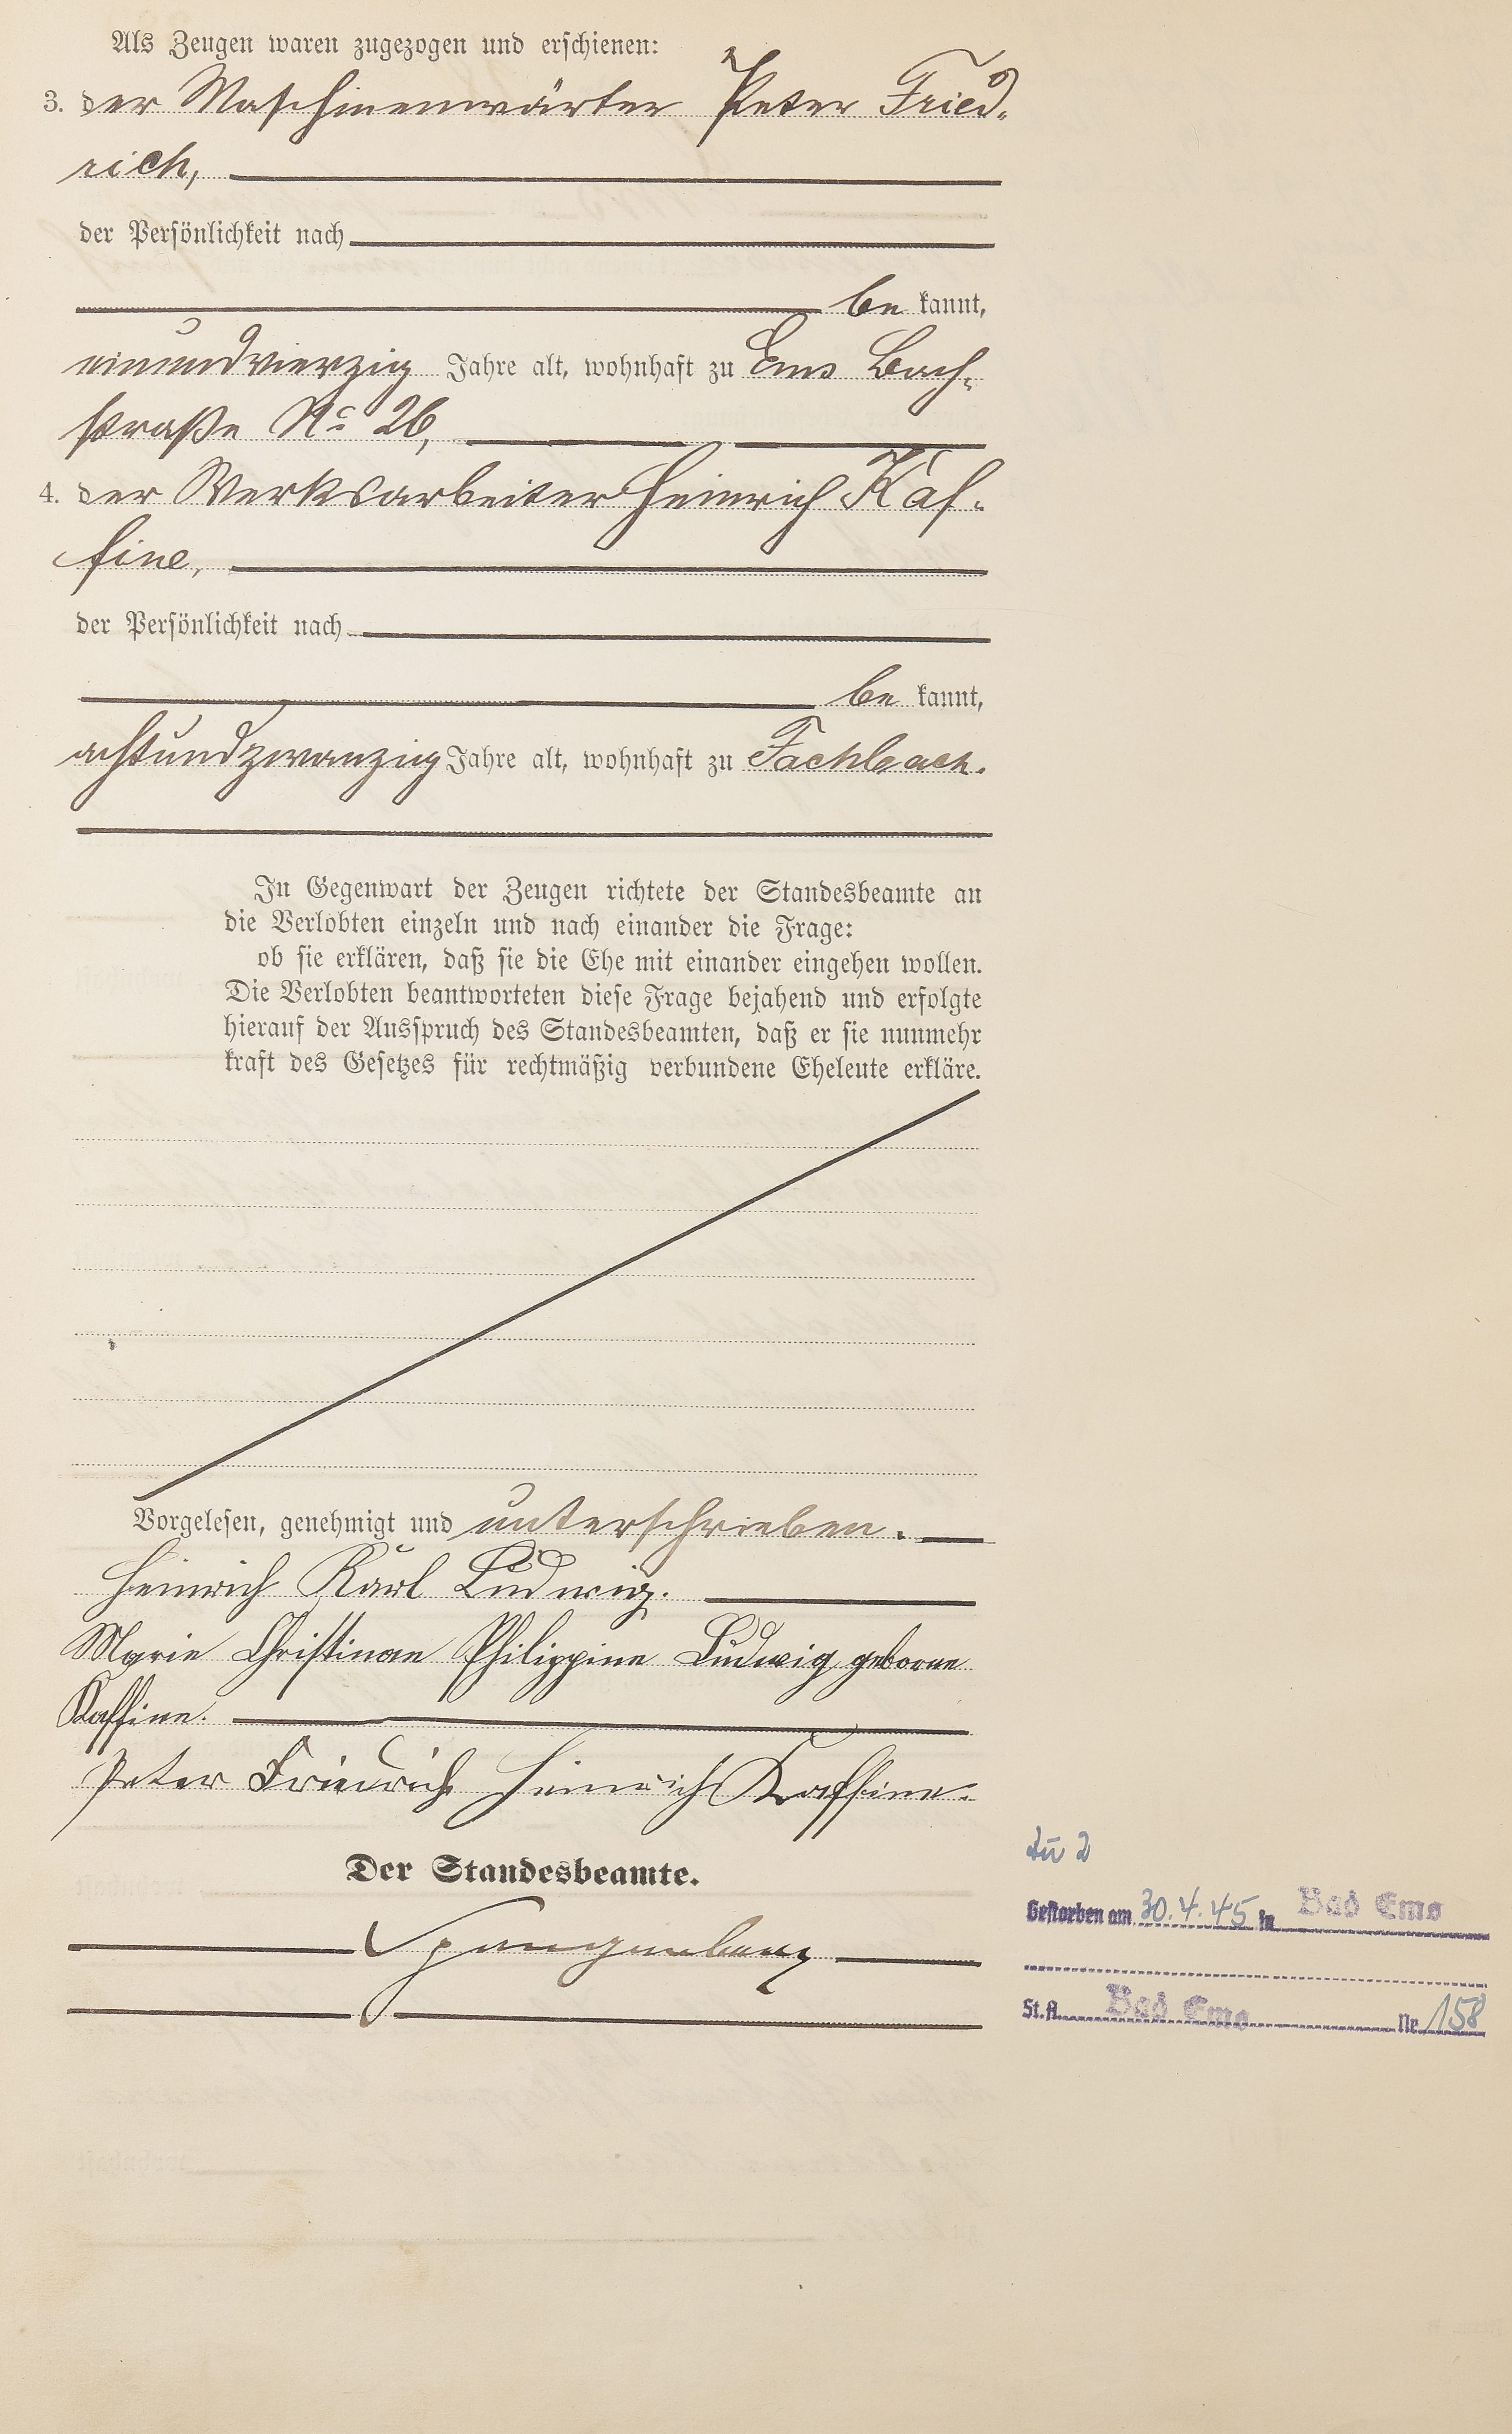 Als Zeugen waren zugezogen und erschienen:
3. der Maschinenwärter Peter Fried-
rich,
der Persönlichkeit nach
be kannt,
einundvierzig Jahre alt, wohnhaft zu Ems Bach-
straße No 26,
4. der Werksarbeiter Heinrich Kaf-
fine,
der Persönlichkeit nach
be kannt,
achtundzwanzig Jahre alt, wohnhaft zu Fachbach.
In Gegenwart der Zeugen richtete der Standesbeamte an
die Verlobten einzeln und nach einander die Frage:
ob sie erklären, daß sie die Ehe mit einander eingehen wollen.
Die Verlobten beantworteten diese Frage bejahend und erfolgte
hierauf der Ausspruch des Standesbeamten, daß er sie nunmehr
kraft des Gesetzes für rechtmäßig verbundene Eheleute erkläre.
Vorgelesen, genehmigt und unterschrieben.
Heinrich Karl Ludwig.
Marie Christinae Philippine Ludwig geborne
Kaffine.
Peter Friedrich Heinrich Kaffine.
Der Standesbeamte.
Spangenberg
Zu 2
Gestorben am 30.4.45 in Bad Ems
St.A. Bad Ems Nr 158